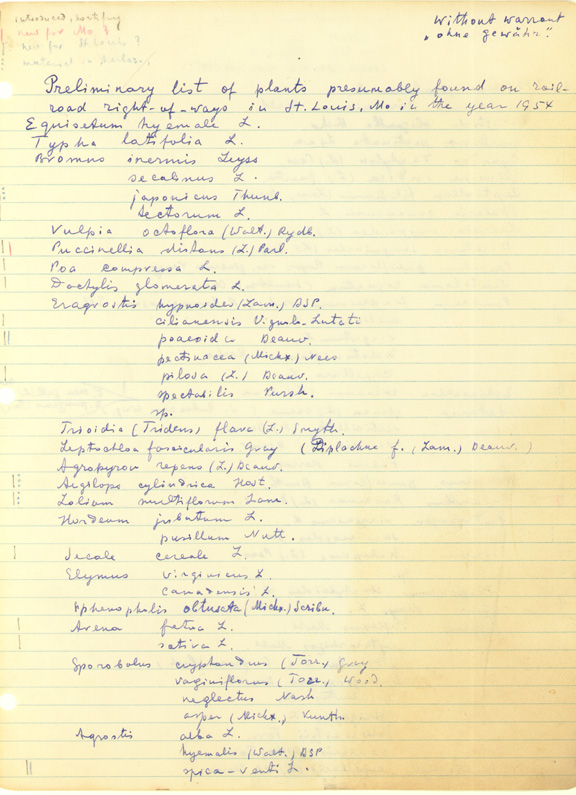 introduced, waiting
new for Mo ?
new for St Louis ?
material in herbar.
without warrant
„ohne gewähr".
Preliminary list of plants presumably found on rail-
road right-of-ways in St. Louis, Mo in the year 1954
Equisetum hyemale L.
Typha latifolia L.
Bromus inermis Leyss
secalinus L.
japonicus Thunb.
tectorum L.
Vulpia octoflora (Walt.) Rydb.
Puccinellia distans (L.) Parl.
Poa compressa L.
Dactylis glomerata L.
Eragrostis hypnoides (Lam.) BSP.
cilianensis Vignolo-Lutati
poaeoides Beauv.
pectinacea (Michx.) Nees
pilosa (L.) Beauv.
spectabilis Pursh.
sp.
Trioidia (Tridens) flava (L.) Smyth.
Leptochloa fascicularis Gray (Diplachne f. (Lam.) Beauv.)
Agropyron repens (L.) Beauv.
Aegilops cylindrica Host.
Lolium multiflorum Lam.
Hordeum jubatum L.
pusillum Nutt.
Secale cereale L.
Elymus virginicus L.
canadensis L.
Sphenopholis obtusata (Michx.) Scribn.
Avena fatua L.
sativa L.
Sporobolus cryptandrus (Torr.) Gray
vaginiflorus (Torr.) Wood.
neglectus Nash
asper (Michx.) Kunth.
Agrostis alba L.
hyemalis (Walt.) BSP
spica-venti L.